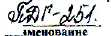 ПДГ-251.
именование